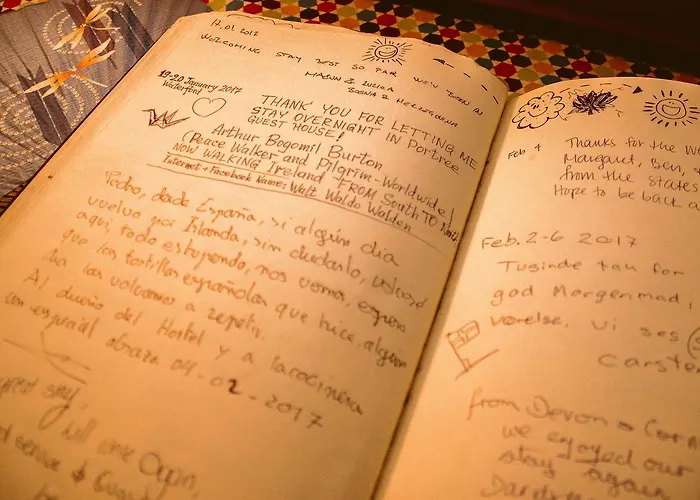 17.01.2017
WELCOMING STAY BEST SO FAR WE'VE BEEN IN
&
BOSNIA & HERCEGOVINA
19-20 January 2017
Waterford
THANK YOU FOR LETTING ME
STAY OVERNIGHT IN Portree
GUEST HOUSE!
Arthur Bogomil Burton
(Peace Walker and Pilgrim-Worldwide)
NOW WALKING Ireland FROM South TO North
Internet + Facebook Name: Walt Waldo Walden
Pedro, desde España, si algún día
vuelvo por Irlanda, sin dudarlo,
aquí, todo estupendo, nos vemos, espero
que las tostillas españolas que hice, alguien
las volvamos a repetir.
Al dueño del Hostel y a la cocinera
un especial abrazo 04-02-2017
stay, will come Again,
service &
Feb 4
Thanks for the
Margaret, Ben,
from the States
Hope to be back a
Feb. 2-6 2017
Tusinde tak for
god Morgenmad
værelse. Vi ses
Carsten
from Devon & Corn
we enjoyed our
stay again